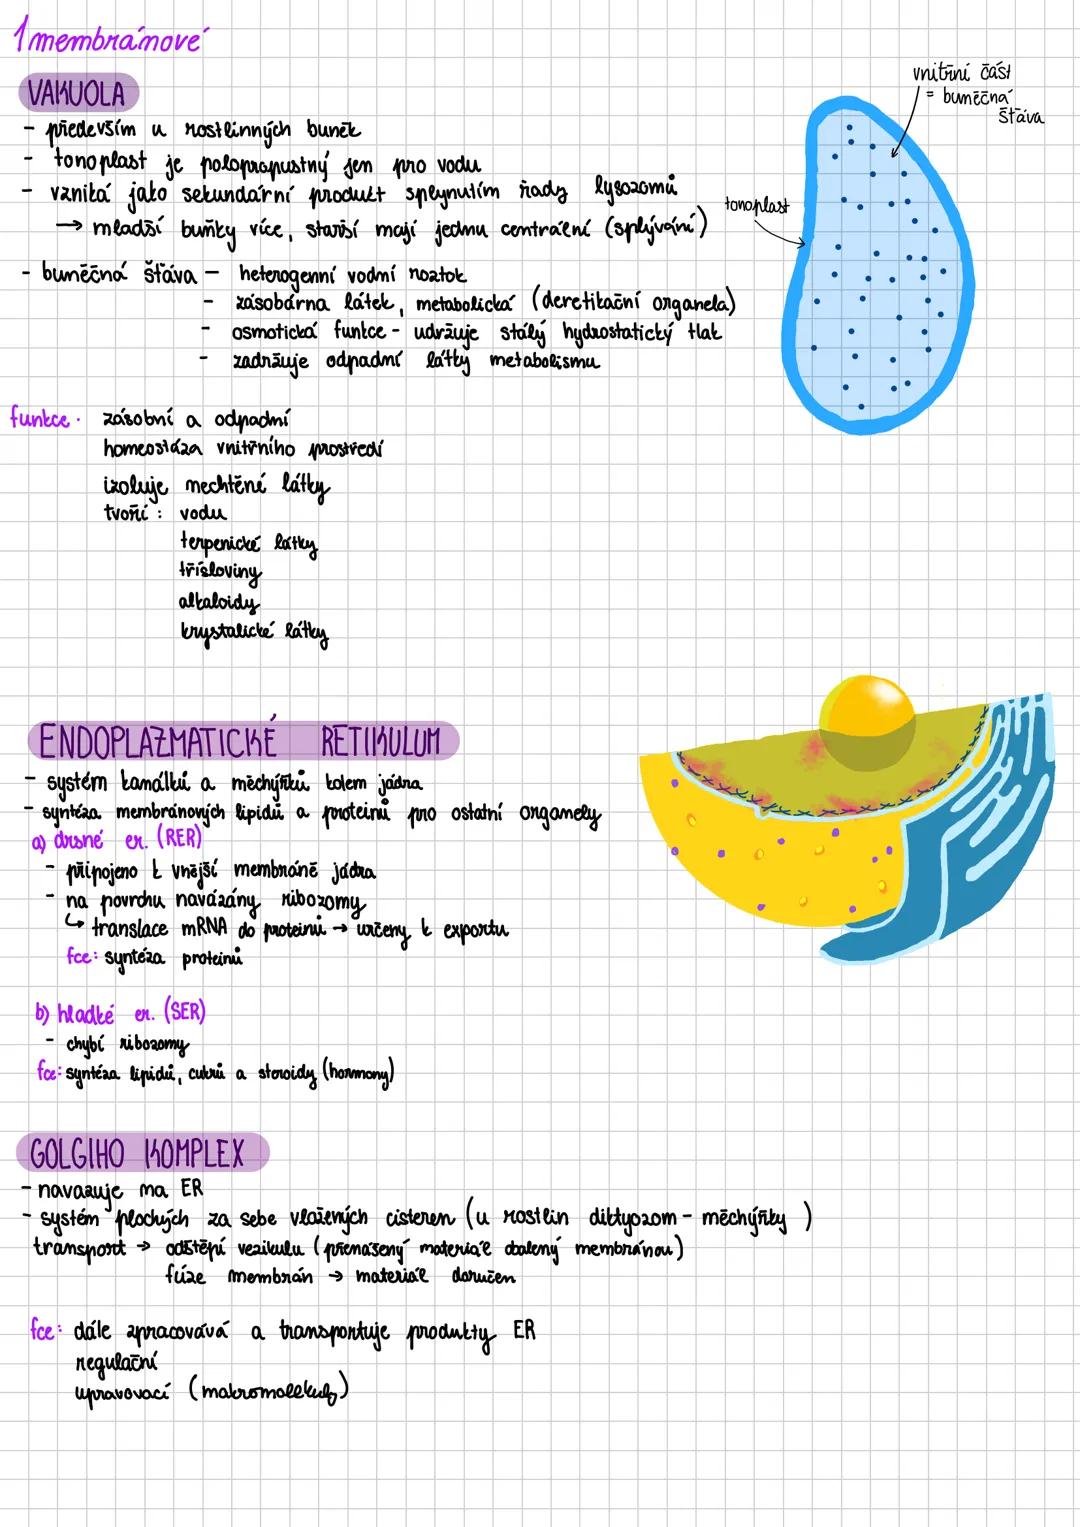 1 membránové
VAKUOLA
- především u rostlinných buněk
- tonoplast je polopropustný jen pro vodu
- vzniká jako sekundární produkt splynutím řady lysozomů
→ mladší buňky více, starší mají jednu centrální (splývání)
- buněčná šťáva - heterogenní vodní roztok
- zásobárna látek, metabolická (deretikační organela)
- osmotická funkce - udržuje stálý hydrostatický tlak
- zadržuje odpadní látky metabolismu
vnitřní část
= buněčná
šťáva
tonoplast
funkce: zásobní a odpadní
homeostáza vnitřního prostředí
izoluje nechtěné látky
tvoří: vodu
terpenické látky
třísloviny
alkaloidy
krystalické látky
ENDOPLAZMATICKÉ RETIKULUM
- systém kanálků a měchýřků kolem jádra
- syntéza membránových lipidů a proteinů pro ostatní organely
a) drsné er. (RER)
- připojeno k vnější membráně jádra
- na povrchu navázány ribozomy
↳ translace mRNA do proteinů → určeny k exportu
fce: syntéza proteinů
b) hladké er. (SER)
- chybí ribozomy
fce: syntéza lipidů, cukrů a steroidy (hormony)
GOLGIHO KOMPLEX
- navazuje na ER
- systém plochých za sebe vložených cisteren (u rostlin diktyozom - měchýřky)
transport → odštěpí vezikulu (přenášený materiál obalený membránou)
fúze membrán → materiál doručen
fce: dále zpracovává a transportuje produkty ER
regulační
upravovací (makromolekuly)